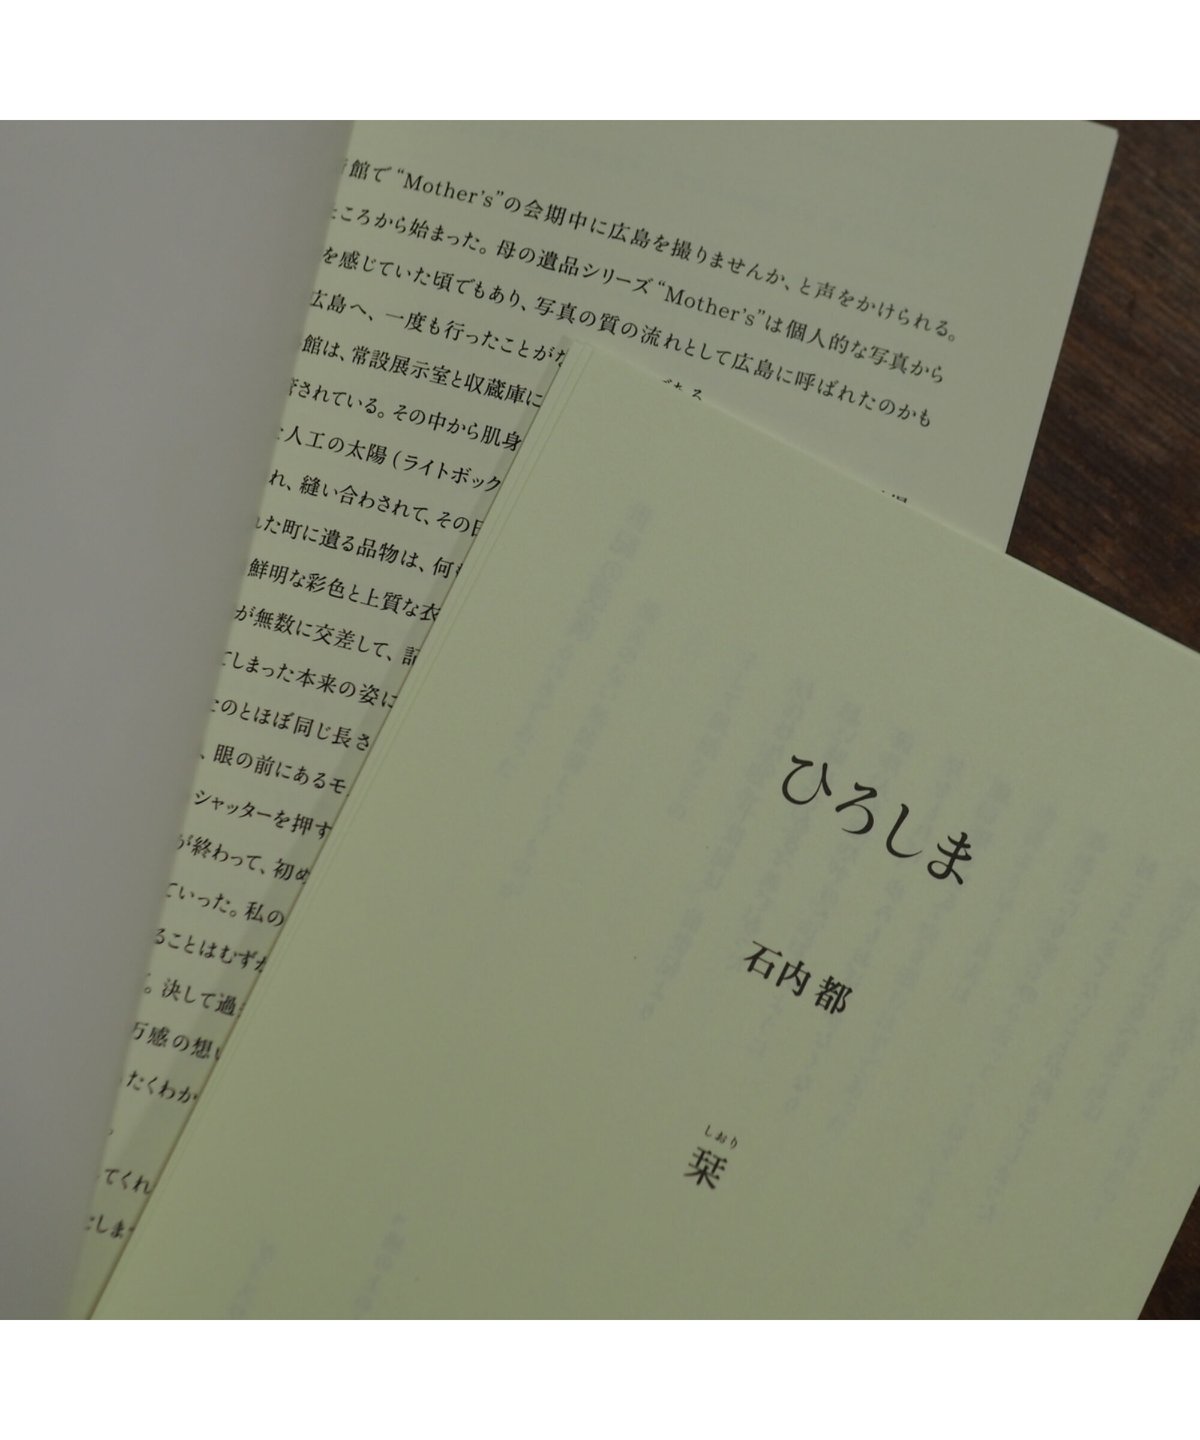 館で“Mother’s”の会期中に広島を撮りませんか、と声をかけられる。
ころから始まった。母の遺品シリーズ“Mother’s”は個人的な写真から
を感じていた頃でもあり、写真の質の流れとして広島に呼ばれたのかも
広島へ、一度も行ったことが
館は、常設展示室と収蔵庫に
されている。その中から肌身
人工の太陽(ライトボック
れ、縫い合わされて、その
れた町に遺る品物は、何
鮮明な彩色と上質な衣
が無数に交差して、記
てしまった本来の姿に
たのとほぼ同じ長さ
、眼の前にあるモ
シャッターを押す
が終わって、初め
ていった。私の
ることはむずか
。決して過
万感の想い
たくわか
。
てくれ
しま
ひろしま
石内 都
しおり
栞